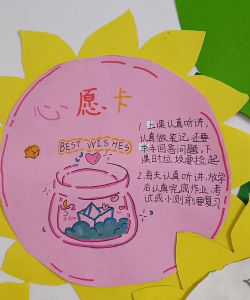 心愿卡
BEST WISHES
1. 上课认真听讲,
认真做笔记,还要
举手回答问题。下
课时垃圾要捡起
2. 每天认真听讲,放学
后认真完成作业,考
试或小测前要复习